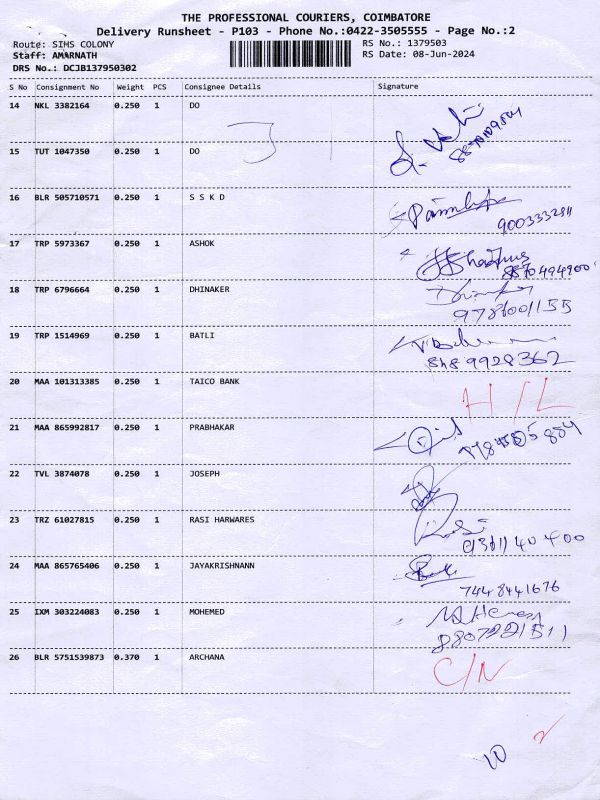 THE PROFESSIONAL COURIERS, COIMBATORE
Delivery Runsheet - P103 - Phone No.:0422-3505555 - Page No.:2
Route: SIHS COLONY RS No.: 1379503
Staff: AMARNATH RS Date: 08-Jun-2024
DRS No.: DCJB137950302
S No Consignment No Weight PCS Consignee Details Signature
14 NKL 3382164 0.250 1 DO
15 TUT 1047350 0.250 1 DO
16 BLR 505710571 0.250 1 S S K D
9003332811
17 TRP 5973367 0.250 1 ASHOK
18 TRP 6796664 0.250 1 DHINAKER
9786001155
19 TRP 1514969 0.250 1 BATLI
20 MAA 101313385 0.250 1 TAICO BANK
H/L
21 MAA 865992817 0.250 1 PRABHAKAR
22 TVL 3874078 0.250 1 JOSEPH
23 TRZ 61027815 0.250 1 RASI HARWARES
24 MAA 865765406 0.250 1 JAYAKRISHNANN
7448441676
25 IXM 303224083 0.250 1 MOHEMED
26 BLR 5751539873 0.370 1 ARCHANA
C/N
10 2